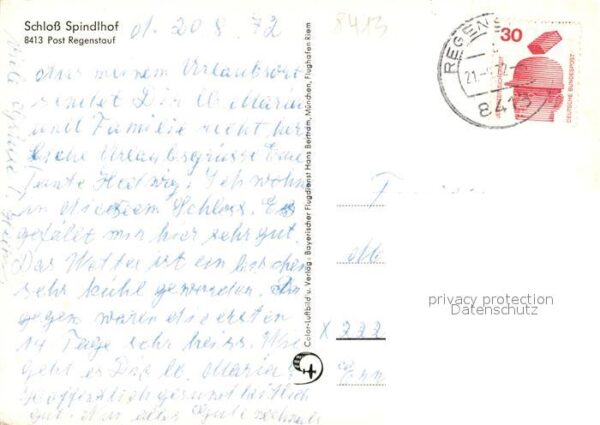 Schloß Spindlhof
8413 Post Regenstauf
d. 20 8. 72
8413
Aus meinem Urlaubsort
sendet Dir lb. Maria
und Familie recht herz
liche Urlaubsgrüsse Eure
Tante Hedwig. Ich wohne
in diesem Schloss. Es
gefällt mir hier sehr gut.
Das Wetter ist ein bischen
sehr kühl geworden. Da
gegen waren die ersten
14 Tage sehr heiss. Wie
geht es Dir lb. Maria?
Hoffentlich gesundheitlich
gut. Nun alles Gute
Viele Grüsse
Color-Luftbild u. Verlag: Bayerischer Flugdienst Hans Bertram, München, Flughafen Riem
REGENS
21.
8413
30
DEUTSCHE BUNDESPOST
privacy protection
Datenschutz